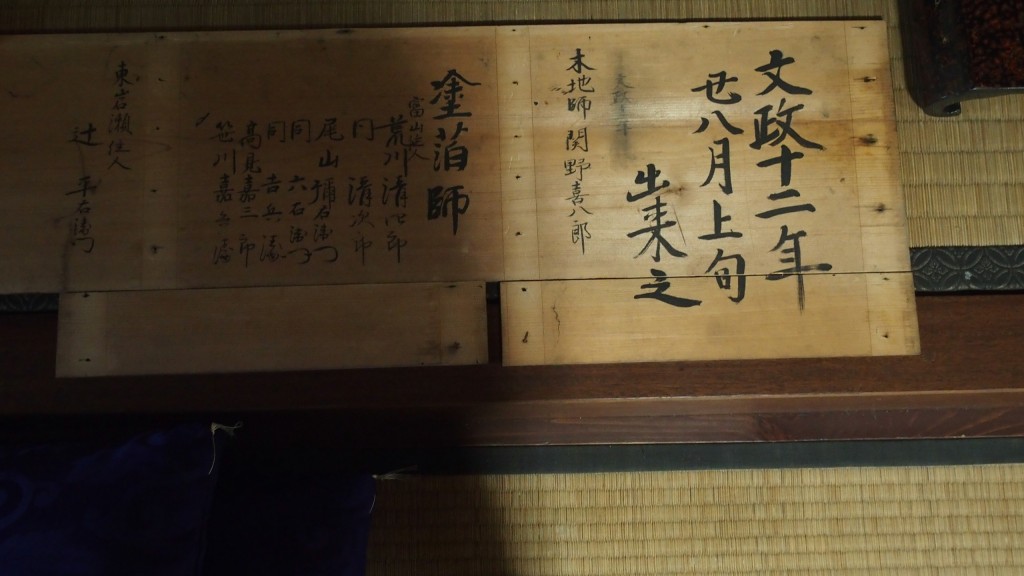 文政十二年
丗八月上旬
出来之
木地師 関野喜八郎
塗箔師
富山住人
荒川 清四郎
同 清次郎
尾山 彌右衛門
同 六右衛門
同 吉兵衛
高見嘉三郎
笹川嘉兵衛
東岩瀬住人
辻 平右衛門